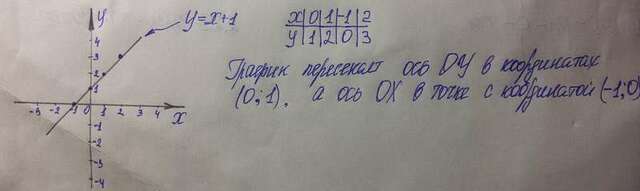 y
y=x+1
x|0|1|-1|2
y|1|2|0|3
График пересекает ось OY в координатах
(0;1), а ось OX в точке с координатой (-1;0)
4
3
2
1
-3 -2 -1 0 1 2 3 4 5
x
-1
-2
-3
-4